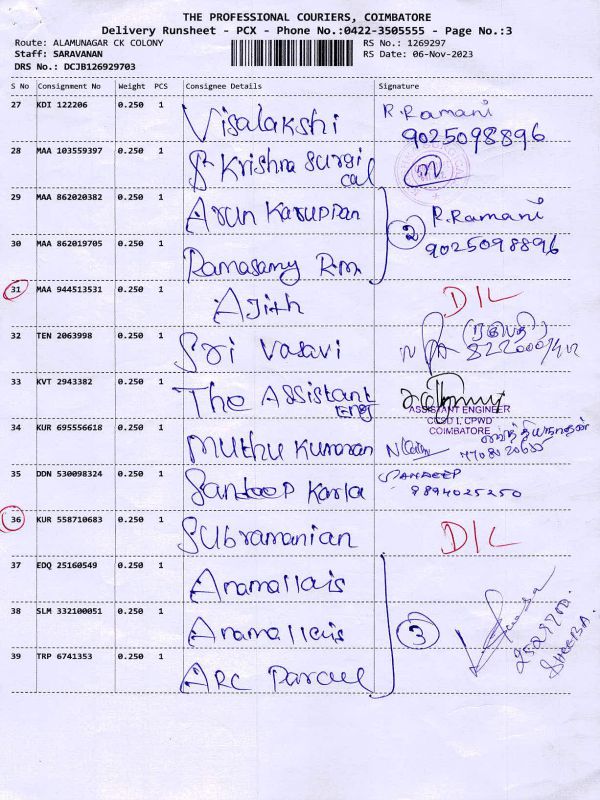 THE PROFESSIONAL COURIERS, COIMBATORE
Delivery Runsheet - PCX - Phone No.:0422-3505555 - Page No.:3
Route: ALAMUNAGAR CK COLONY RS No.: 1269297
Staff: SARAVANAN RS Date: 06-Nov-2023
DRS No.: DCJB126929703
S No Consignment No Weight PCS Consignee Details Signature
27 KDI 122206 0.250 1 Visalakshi R.Ramani
9025098896
28 MAA 103559397 0.250 1 Krishna Surgi
cal
29 MAA 862020382 0.250 1 Arun Karuppan R.Ramani
2 9025098896
30 MAA 862019705 0.250 1 Ramasamy R.m
31 MAA 944513531 0.250 1 Ajith D/L
32 TEN 2063998 0.250 1 Sri Vasavi
33 KVT 2943382 0.250 1 The Assistant
Eng
ASSISTANT ENGINEER
CCSD I, CPWD
COIMBATORE
34 KUR 695556618 0.250 1 Muthu Kumaran
35 DDN 530098324 0.250 1 Sandeep Karla SANDEEP
8894025250
36 KUR 558710683 0.250 1 Subramanian D/L
37 EDQ 25160549 0.250 1 Anamallais
38 SLM 332100051 0.250 1 Anamallais 3
SHEEBA.
39 TRP 6741353 0.250 1 ARC Parcel